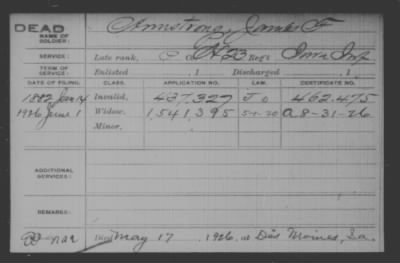 DEAD
NAME OF SOLDIER: Armstrong, James
SERVICE: Late rank, Co. H, 23 Reg't Iowa Inf
TERM OF SERVICE: Enlisted , 1 Discharged , 1
DATE OF FILING. CLASS. APPLICATION NO. LAW. CERTIFICATE NO.
1882 Jan 14 Invalid, 437.327 462.475
1926 June 1 Widow, 1,541,395 5-1-20 A 8-31-26
Minor,
ADDITIONAL SERVICES:
REMARKS:
Died May 17 1926, at Des Moines, Ia.